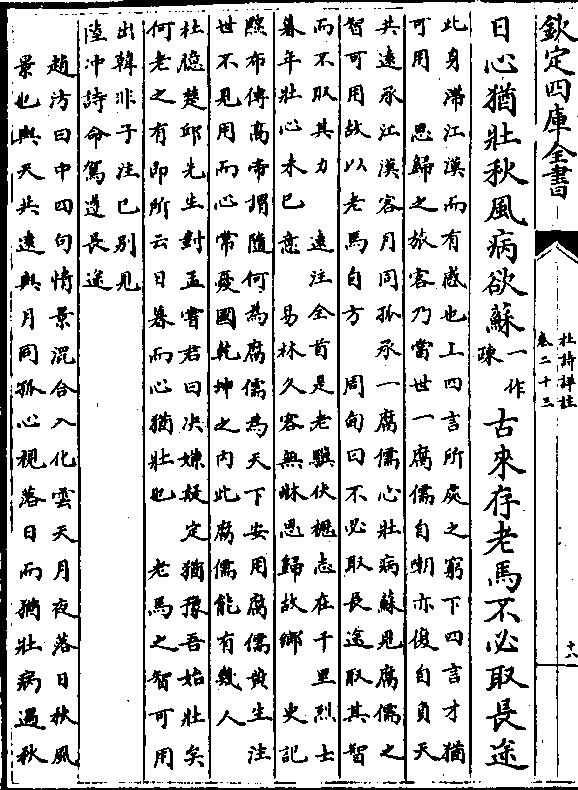 欽定四庫全書
杜詩詳註
卷二十三
十八
日心猶壯秋風病欲蘇一作疎古來存老馬不必取長途
此身滯江漢而有感也上四言所處之窮下四言才猶
可用　思歸之旅客乃當世一腐儒自嘲亦復自負天
共遠承江漢客月同孤承一腐儒心壯病蘇見腐儒之
智可用故以老馬自方　周甸曰不必取長途取其智
而不取其力　遠注全首是老驥伏櫪志在千里烈士
暮年壯心未已意　易林久客無牀思歸故鄉　史記
黥布傳髙帝謂隨何為腐儒為天下安用腐儒黄生注
世不見用而心常憂國乾坤之内此腐儒能有幾人
杜臆楚邱先生對孟嘗君曰决嫌疑定猶豫吾始壯矣
何老之有即所云日暮而心猶壯也　老馬之智可用
出韓非子注已别見
陸冲詩命駕遵長途
趙汸曰中四句情景混合入化雲天月夜落日秋風
景也與天共遠與月同孤心視落日而猶壯病遇秋